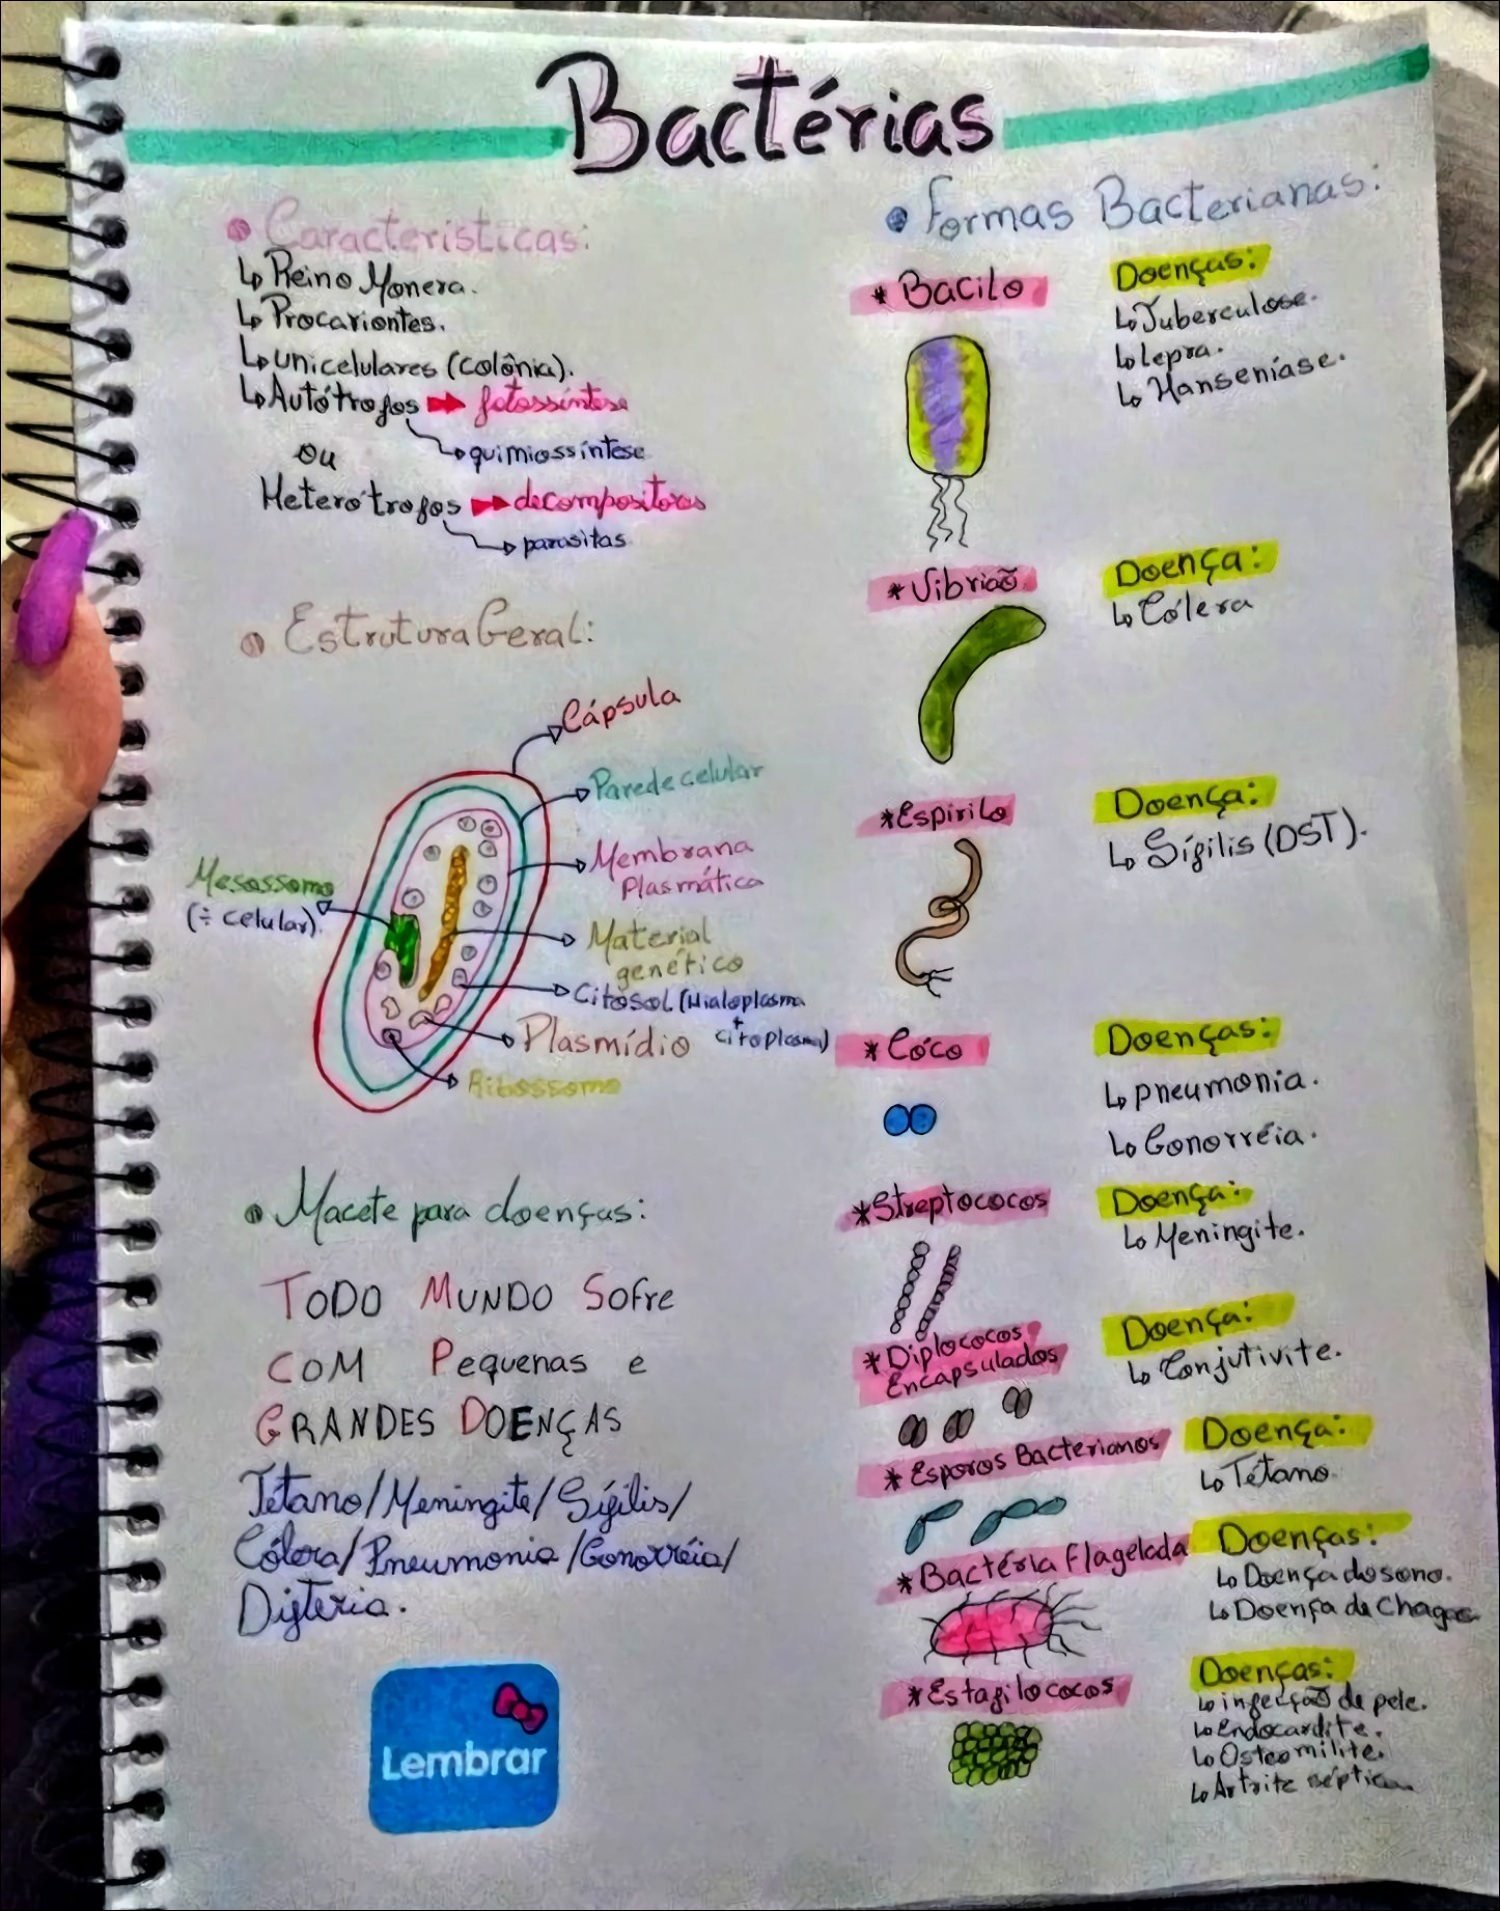 Bactérias
• Características:
↳ Reino Monera.
↳ Procariontes.
↳ Unicelulares (colônia).
↳ Autótrofos ➡ fotossíntese
↳ quimiossíntese
ou
Heterótrofos ➡ decompositores
↳ parasitas
• Estrutura Geral:
Cápsula
Parede celular
Membrana
Plasmática
Mesossomo
(÷ celular).
Material
genético
Citosol (Hialoplasma
+
citoplasma)
Plasmídio
Ribossomo
• Macete para doenças:
TODO MUNDO Sofre
COM Pequenas e
GRANDES DOENÇAS
Tétano/Meningite/Sífilis/
Cólera/Pneumonia/Gonorréia/
Difteria.
Lembrar
• Formas Bacterianas:
* Bacilo
Doenças:
↳ Tuberculose.
↳ Lepra.
↳ Hanseníase.
* Vibrião
Doença:
↳ Cólera
* Espirilo
Doença:
↳ Sífilis (DST).
* Cóco
Doenças:
↳ pneumonia.
↳ Gonorréia.
* Streptococos
Doença:
↳ Meningite.
* Diplococos
Encapsulados
Doença:
↳ Conjutivite.
* Esporos Bacterianos
Doença:
↳ Tétano
* Bactéria Flagelada
Doenças:
↳ Doença do sono.
↳ Doença de Chagas
* Estafilococos
Doenças:
↳ infecção de pele.
↳ Endocardite.
↳ Osteomilite.
↳ Artrite séptica